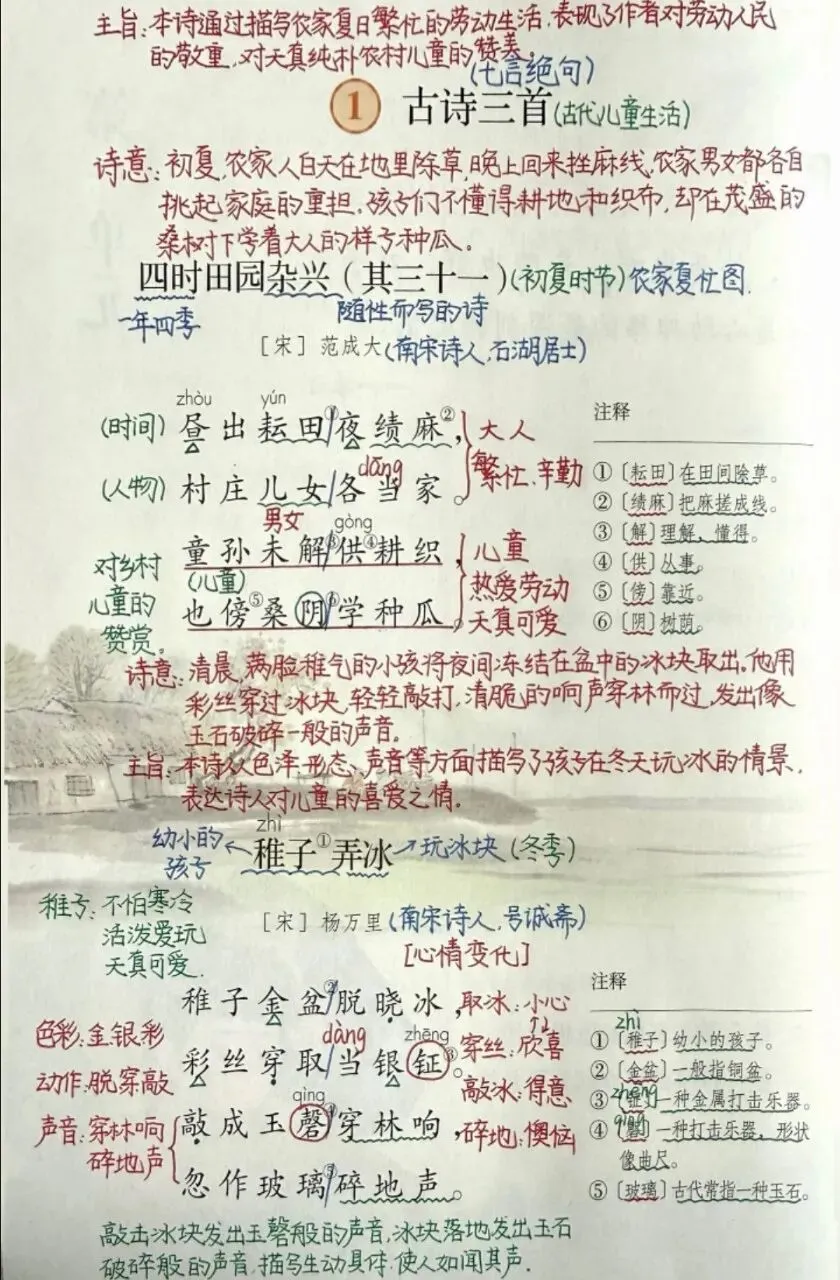 主旨:本诗通过描写农家夏日繁忙的劳动生活,表现了作者对劳动人民
的敬重,对天真纯朴农村儿童的赞美。
(七言绝句)
1 古诗三首(古代儿童生活)
诗意:初夏,农家人白天在地里除草,晚上回来挫麻线,农家男女都各自
挑起家庭的重担。孩子们不懂得耕地和织布,却在茂盛的
桑树下学着大人的样子种瓜。
四时田园杂兴(其三十一)(初夏时节)农家夏忙图.
一年四季 随性而写的诗
[宋] 范成大(南宋诗人,石湖居士)
zhòu yún
(时间) 昼出耘田①/夜绩麻②, 大人
繁忙、辛勤
dāng
(人物) 村庄儿女/各当家。
男女 gòng
童孙未解③/供④耕织, 儿童
(儿童) 热爱劳动
也傍⑤桑阴⑥/学种瓜。 天真可爱
对乡村
儿童的
赞赏.
注释
①〔耘田〕在田间除草。
②〔绩麻〕把麻搓成线。
③〔解〕理解、懂得。
④〔供〕从事。
⑤〔傍〕靠近。
⑥〔阴〕树荫。
诗意:清晨,满脸稚气的小孩将夜间冻结在盆中的冰块取出.他用
彩丝穿过冰块,轻轻敲打,清脆的响声穿林而过,发出像
玉石破碎一般的声音。
主旨:本诗从色泽、形态、声音等方面描写了孩子在冬天玩冰的情景,
表达诗人对儿童的喜爱之情.
zhì
幼小的
孩子 ← 稚子①弄冰 → 玩冰块(冬季)
[宋] 杨万里(南宋诗人,号诚斋)
稚子:不怕寒冷
活泼爱玩
天真可爱.
[心情变化]
稚子金盆②/脱晓冰, 取冰:小心
dàng zhēng
彩丝穿取/当银钲③。 穿丝:欣喜
qìng
敲成玉磬④/穿林响, 敲冰:得意
忽作玻璃⑤/碎地声。 碎地:懊恼
色彩:金.银.彩
动作:脱.穿.敲
声音:穿林响
碎地声
注释
zhì
①〔稚子〕幼小的孩子。
②〔金盆〕一般指铜盆。
zhēng
③〔钲〕一种金属打击乐器。
qìng
④〔磬〕一种打击乐器,形状
像曲尺。
⑤〔玻璃〕古代常指一种玉石。
敲击冰块发出玉磬般的声音,冰块落地发出玉石
破碎般的声音,描写生动具体,使人如闻其声.